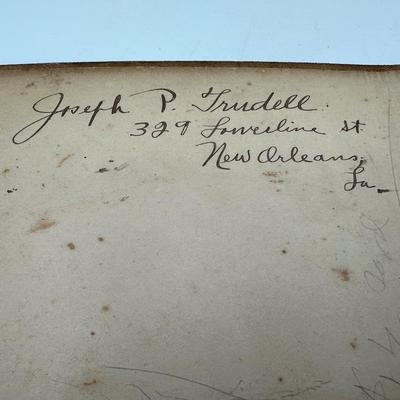 Joseph P. Trudell.
329 Lowerline St
New Orleans,
La.